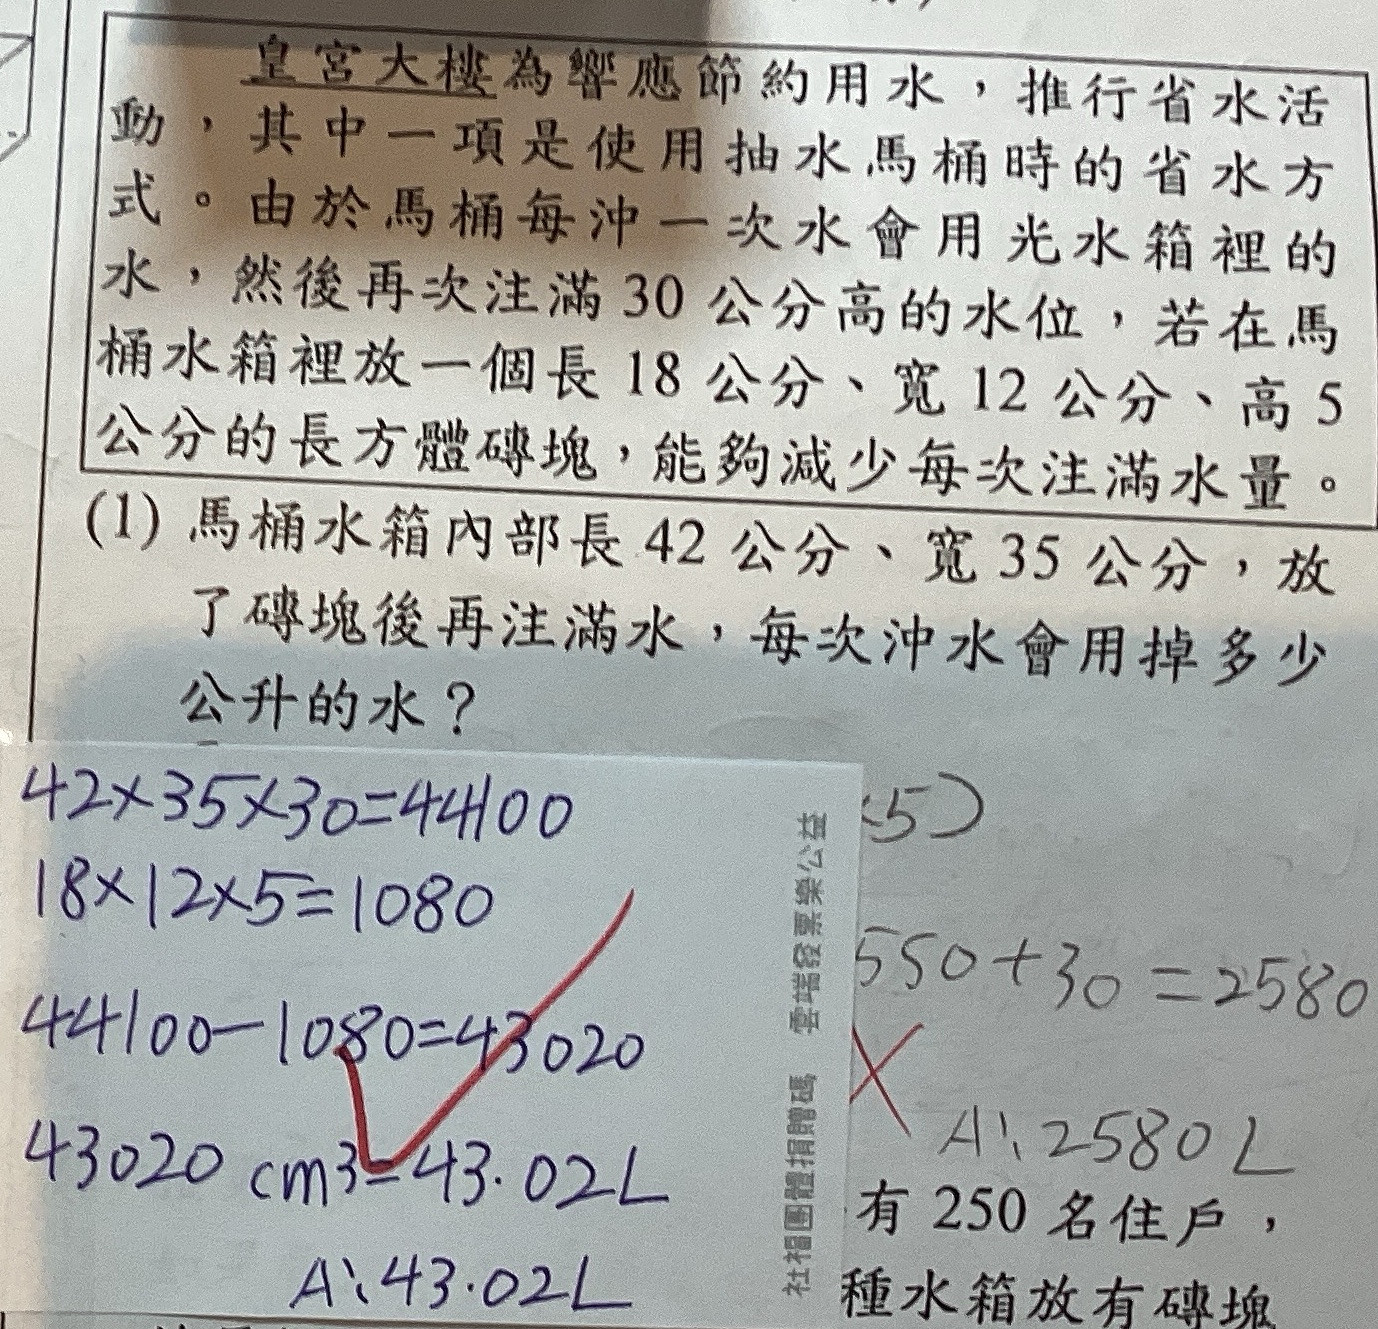 皇宮大樓為響應節約用水，推行省水活
動，其中一項是使用抽水馬桶時的省水方
式。由於馬桶每沖一次水會用光水箱裡的
水，然後再次注滿 30 公分高的水位，若在馬
桶水箱裡放一個長 18 公分、寬 12 公分、高 5
公分的長方體磚塊，能夠減少每次注滿水量。
(1) 馬桶水箱內部長 42 公分、寬 35 公分，放
了磚塊後再注滿水，每次沖水會用掉多少
公升的水？
42×35×30=44100
18×12×5=1080
44100-1080=43020
43020 cm3=43.02L
A:43.02L
社福團體捐贈碼 雲端發票樂公益
×5)
550+30=2580
A:2580L
有 250 名住戶，
種水箱放有磚塊